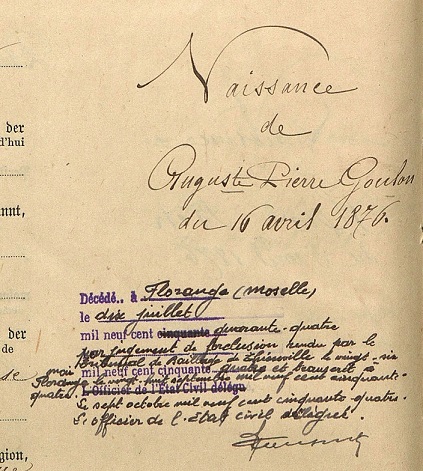 der
d'hui
nnt,
der
de
se
gion,
Naissance
de
Auguste Pierre Goulon
du 16 avril 1876.
Décédé.. à Florange (Moselle)
le dix juillet
mil neuf cent cinquante quarante-quatre
par jugement de forclusion rendu par le
Tribunal de Bailliage de Thionville le vingt-six
mai mil neuf cent cinquante-quatre et transcrit à
Florange le vingt septembre mil neuf cent cinquante-
quatre. L'Officier de l'Etat Civil délégu
Le sept octobre mil neuf cent cinquante-quatre.
L'officier de l'Etat civil délégué.